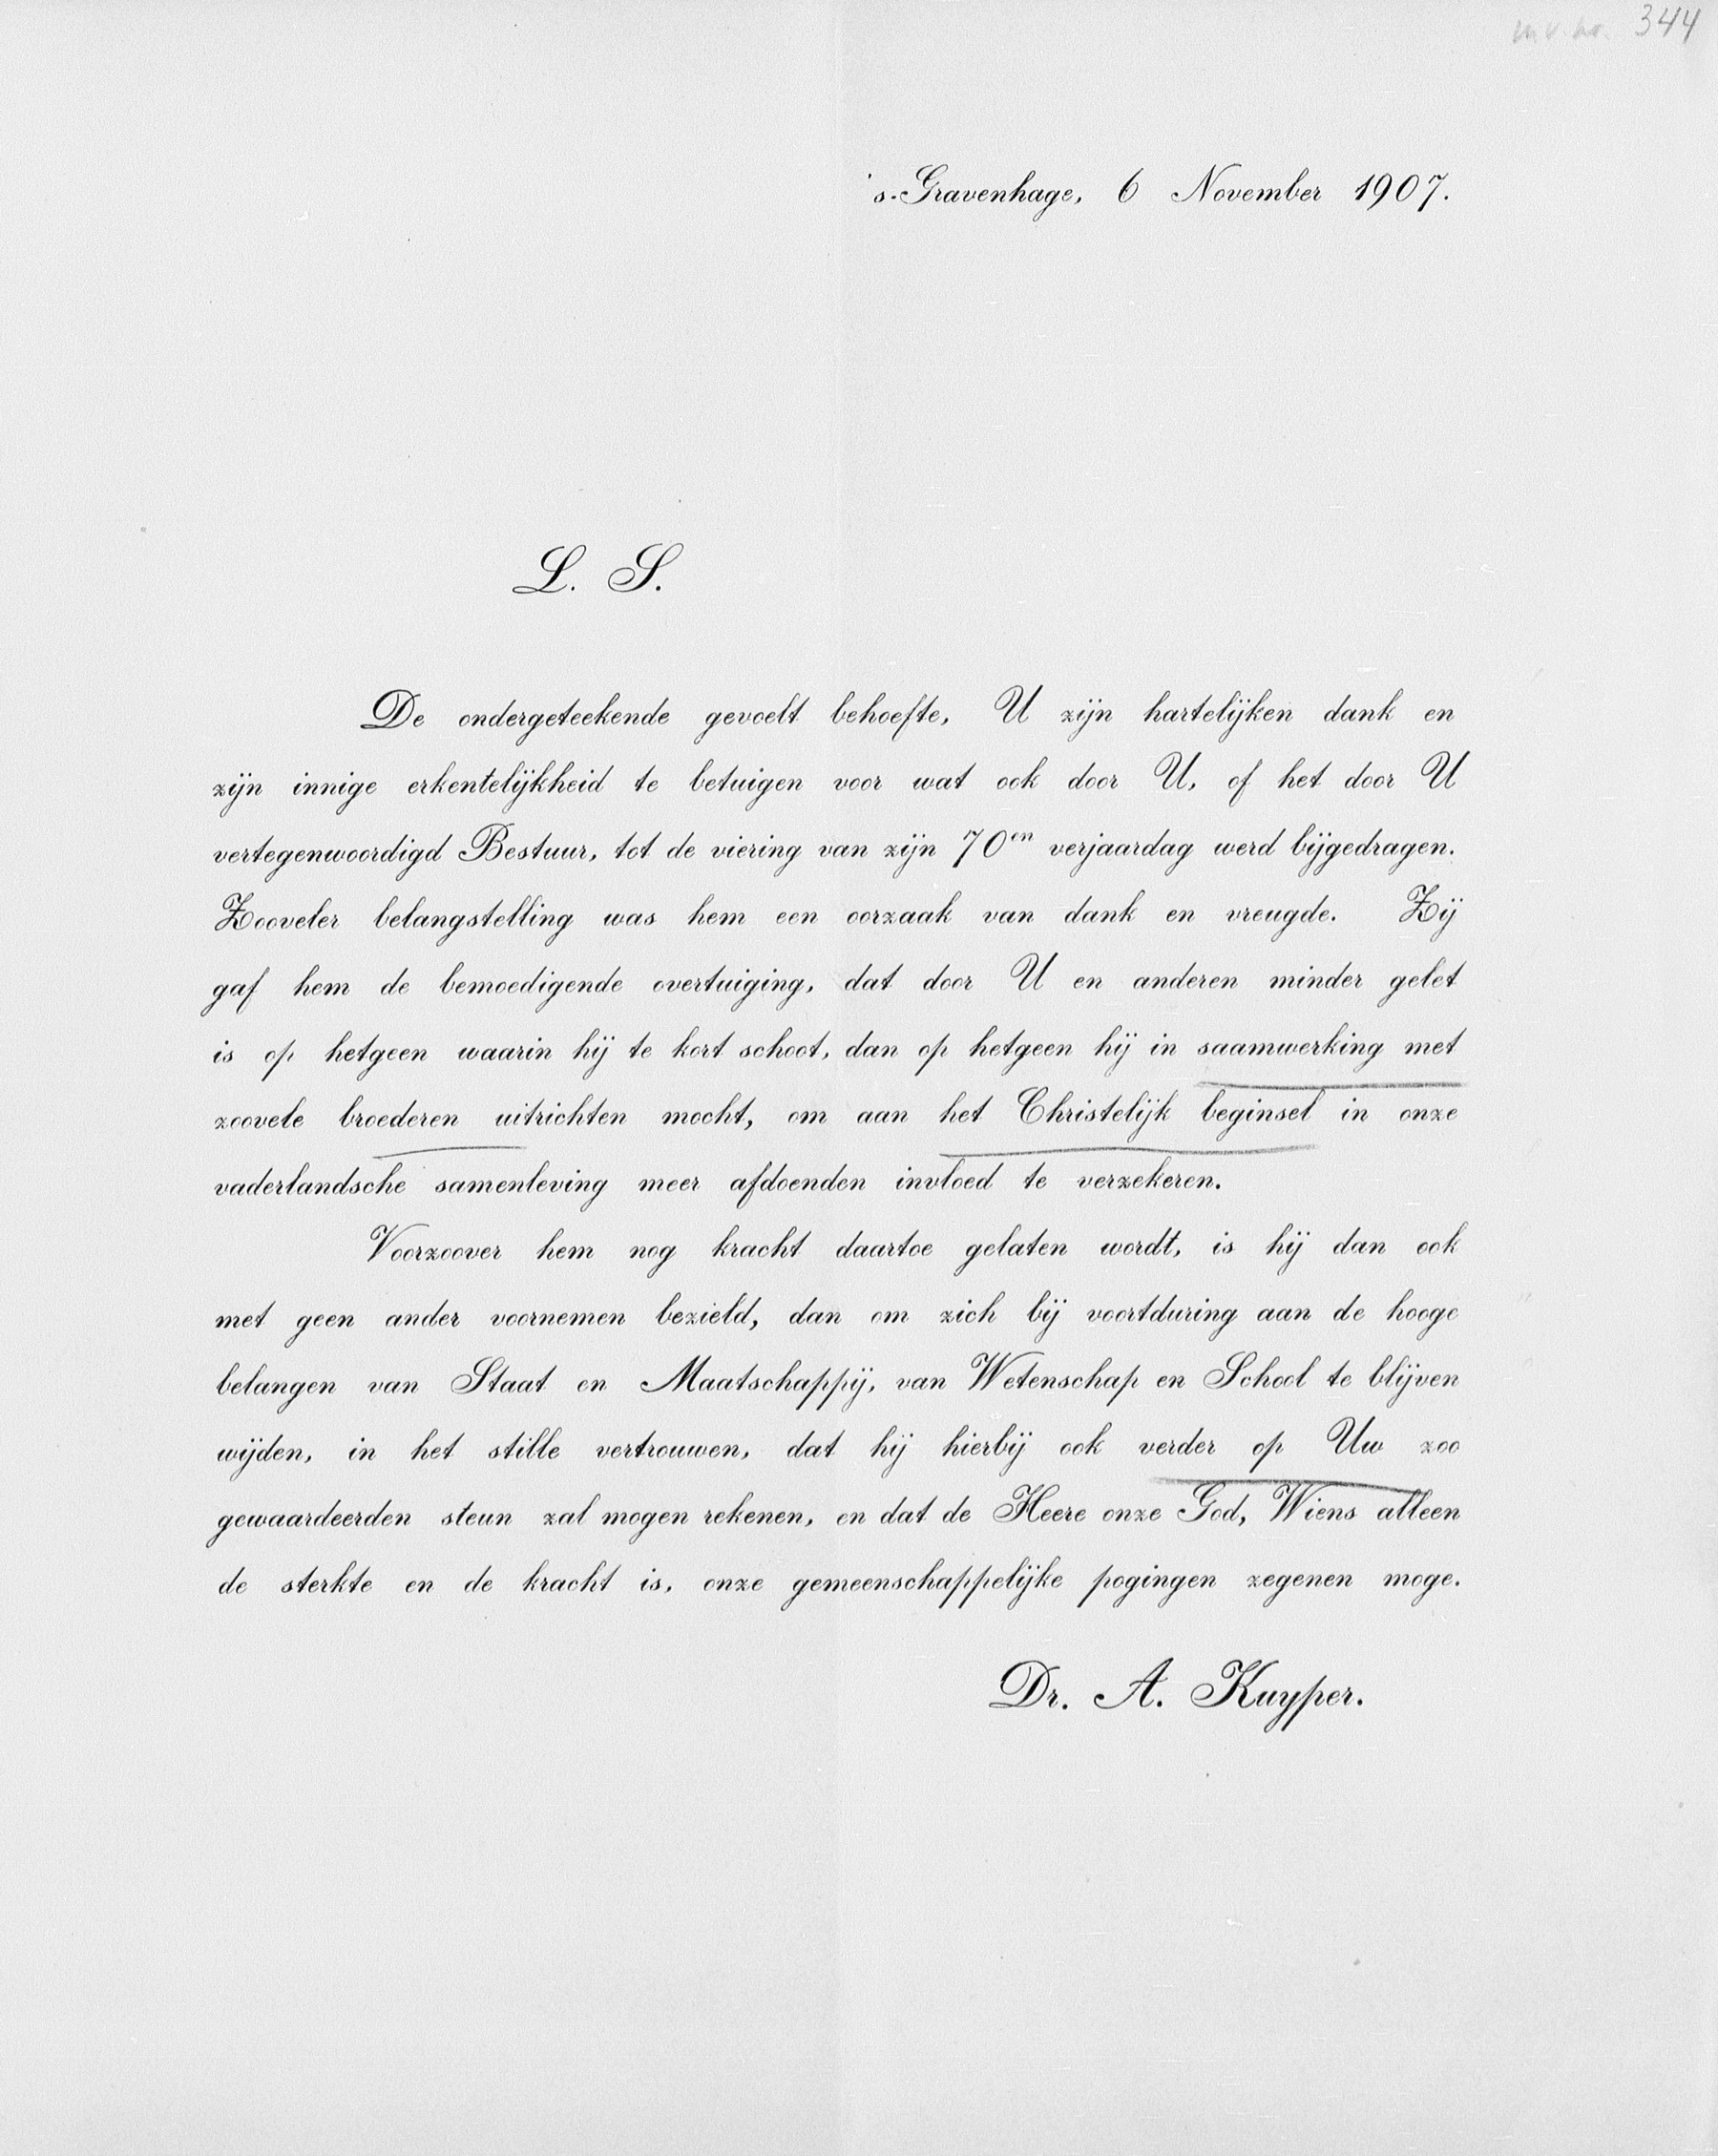 344
's-Gravenhage, 6 November 1907.
L. S.
De ondergeteekende gevoelt behoefte, U zijn hartelijken dank en
zijn innige erkentelijkheid te betuigen voor wat ook door U, of het door U
vertegenwoordigd Bestuur, tot de viering van zijn 70en verjaardag werd bijgedragen.
Zooveler belangstelling was hem een oorzaak van dank en vreugde. Zij
gaf hem de bemoedigende overtuiging, dat door U en anderen minder gelet
is op hetgeen waarin hij te kort schoot, dan op hetgeen hij in saamwerking met
zoovele broederen uitrichten mocht, om aan het Christelijk beginsel in onze
vaderlandsche samenleving meer afdoenden invloed te verzekeren.
Voorzoover hem nog kracht daartoe gelaten wordt, is hij dan ook
met geen ander voornemen bezield, dan om zich bij voortduring aan de hooge
belangen van Staat en Maatschappij, van Wetenschap en School te blijven
wijden, in het stille vertrouwen, dat hij hierbij ook verder op Uw zoo
gewaardeerden steun zal mogen rekenen, en dat de Heere onze God, Wiens alleen
de sterkte en de kracht is, onze gemeenschappelijke pogingen zegenen moge.
Dr. A. Kuyper.